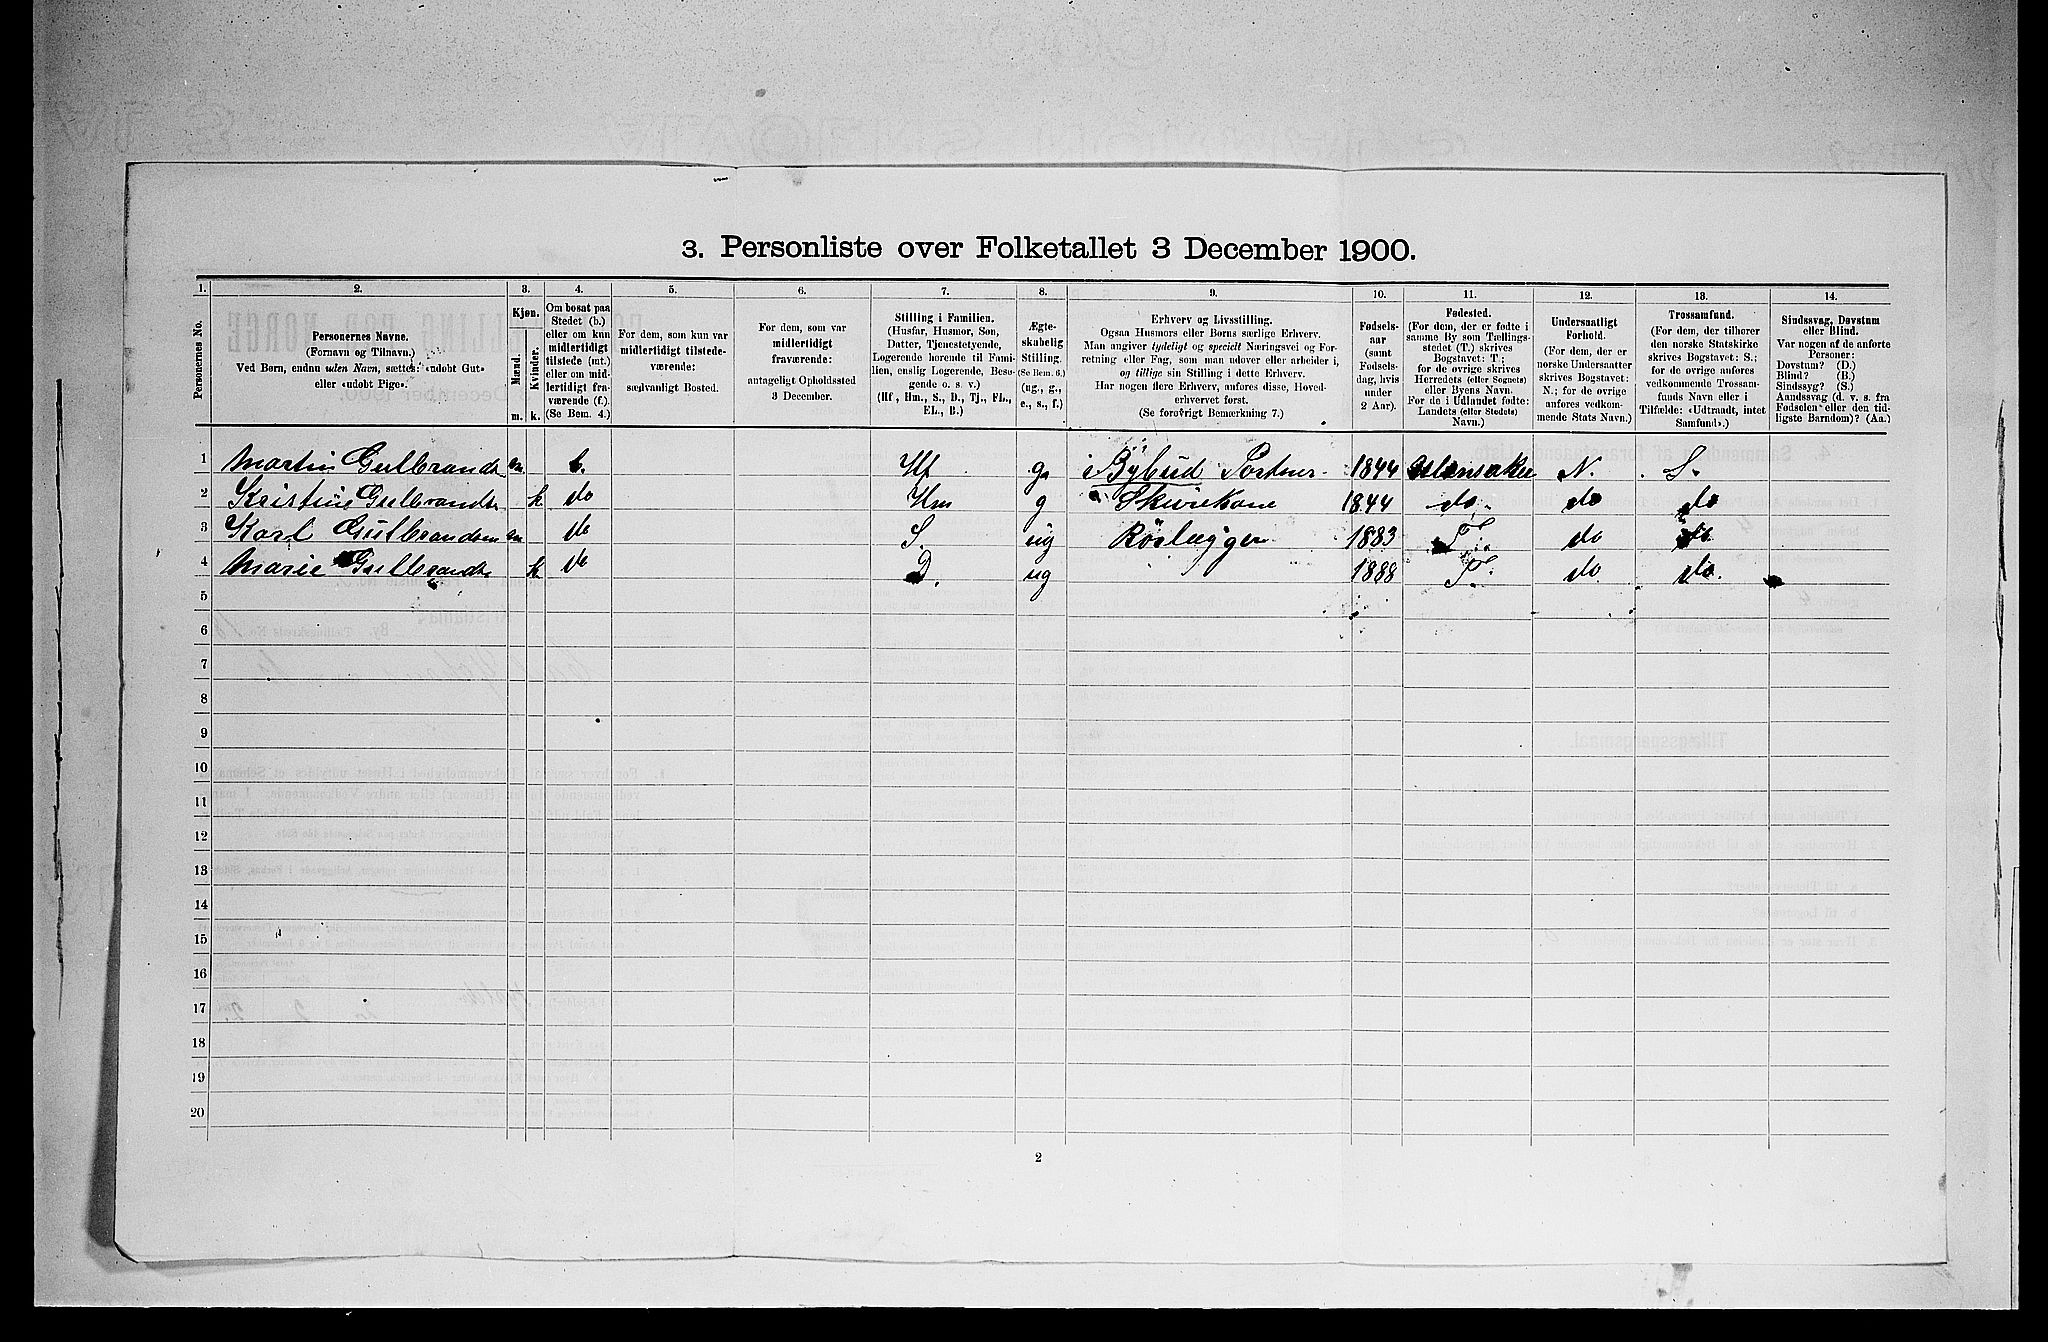 3. Personliste over Folketallet 3 December 1900.
1. 2. 3. 4. 5. 6. 7. 8. 9. 10. 11. 12. 13. 14.
Personernes No.
Personernes Navne.
(Fornavn og Tilnavn.)
Ved Børn, endnu uden Navn, sættes: «udøbt Gut»
eller «udøbt Pige».
Kjøn.
Mænd.
Kvinder.
m. k.
Om bosat paa
Stedet (b.)
eller om kun
midlertidigt
tilstede (mt.)
eller om mid-
lertidigt fra-
værende (f.).
(Se Bem. 4.)
For dem, som kun var
midlertidigt tilstede-
værende:
sædvanligt Bosted.
For dem, som var
midlertidigt
fraværende:
antageligt Opholdssted
3 December.
Stilling i Familien.
(Husfar, Husmor, Søn,
Datter, Tjenestetyende,
Logerende hørende til Fami-
lien, enslig Logerende, Besø-
gende o. s. v.)
(Hf, Hm., S., D., Tj., FL.,
EL., B.)
Ægte-
skabelig
Stilling.
(Se Bem. 6.)
(ug., g.,
e., s., f.)
Erhverv og Livsstilling.
Ogsaa Husmors eller Børns særlige Erhverv.
Man angiver tydeligt og specielt Næringsvei og For-
retning eller Fag, som man udøver eller arbeider i,
og tillige sin Stilling i dette Erhverv.
Har nogen flere Erhverv, anføres disse, Hoved-
erhvervet først.
(Se forøvrigt Bemærkning 7.)
Fødsels-
aar
(samt
Fødsels-
dag, hvis
under
2 Aar).
Fødested.
(For dem, der er fødte i
samme By som Tællings-
stedet (T.) skrives
Bogstavet: T;
for de øvrige skrives
Herredets (eller Sognets)
eller Byens Navn.
For de i Udlandet fødte:
Landets (eller Stedets)
Navn.)
Undersaatligt
Forhold.
(For dem, der er
norske Undersaatter
skrives Bogstavet:
N.; for de øvrige
anføres vedkom-
mende Stats Navn.)
Trossamfund.
(For dem, der tilhører
den norske Statskirke
skrives Bogstavet: S.;
for de øvrige anføres
vedkommende Trossam-
funds Navn eller i
Tilfælde: «Udtraadt, intet
Samfund».)
Sindssvag, Døvstum
eller Blind.
Var nogen af de anførte
Personer:
Døvstum? (D.)
Blind? (B.)
Sindssyg? (S.)
Aandssvag (d. v. s. fra
Fødselen eller den tid-
ligste Barndom)? (Aa.)
1 Martin Gulbrands m b. Hf g. i Bybud Postens 1844 Ulensaker N. S.
2 Kristine Gulbrands k do Hm g Skurekone 1844 do. do do
3 Karl Gulbrandsen m do S. ug Rørlægger 1883 T. do do
4 Marie Gulbrands k do D. ug 1888 T. do do.
5
6
7
8
9
10
11
12
13
14
15
16
17
18
19
20
2